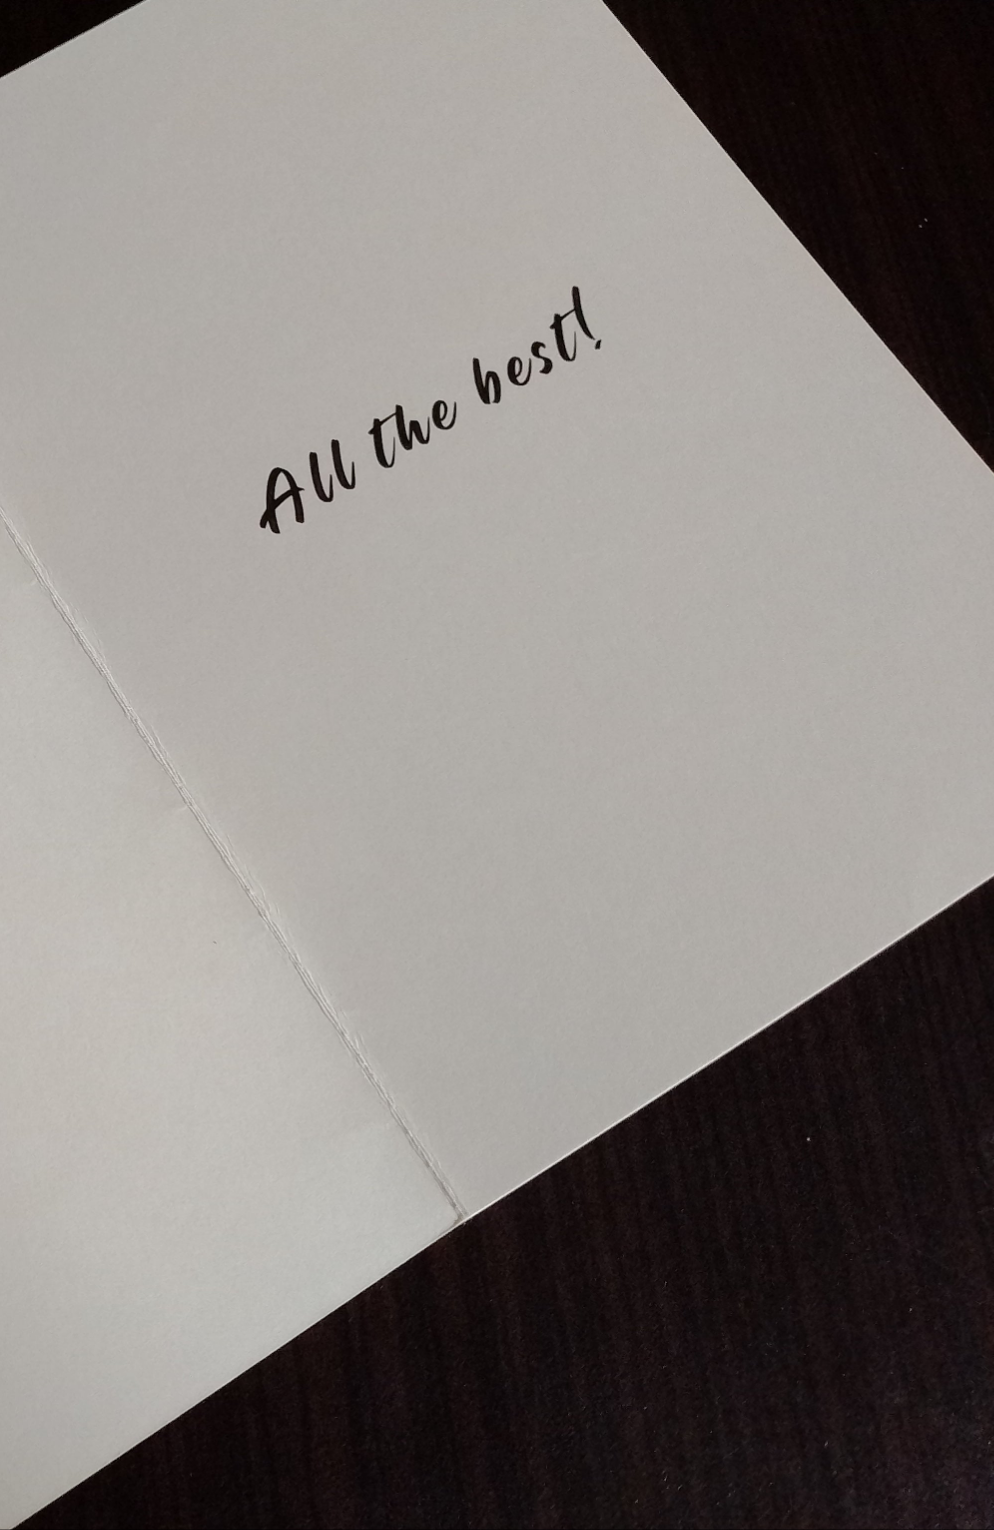 All the best!